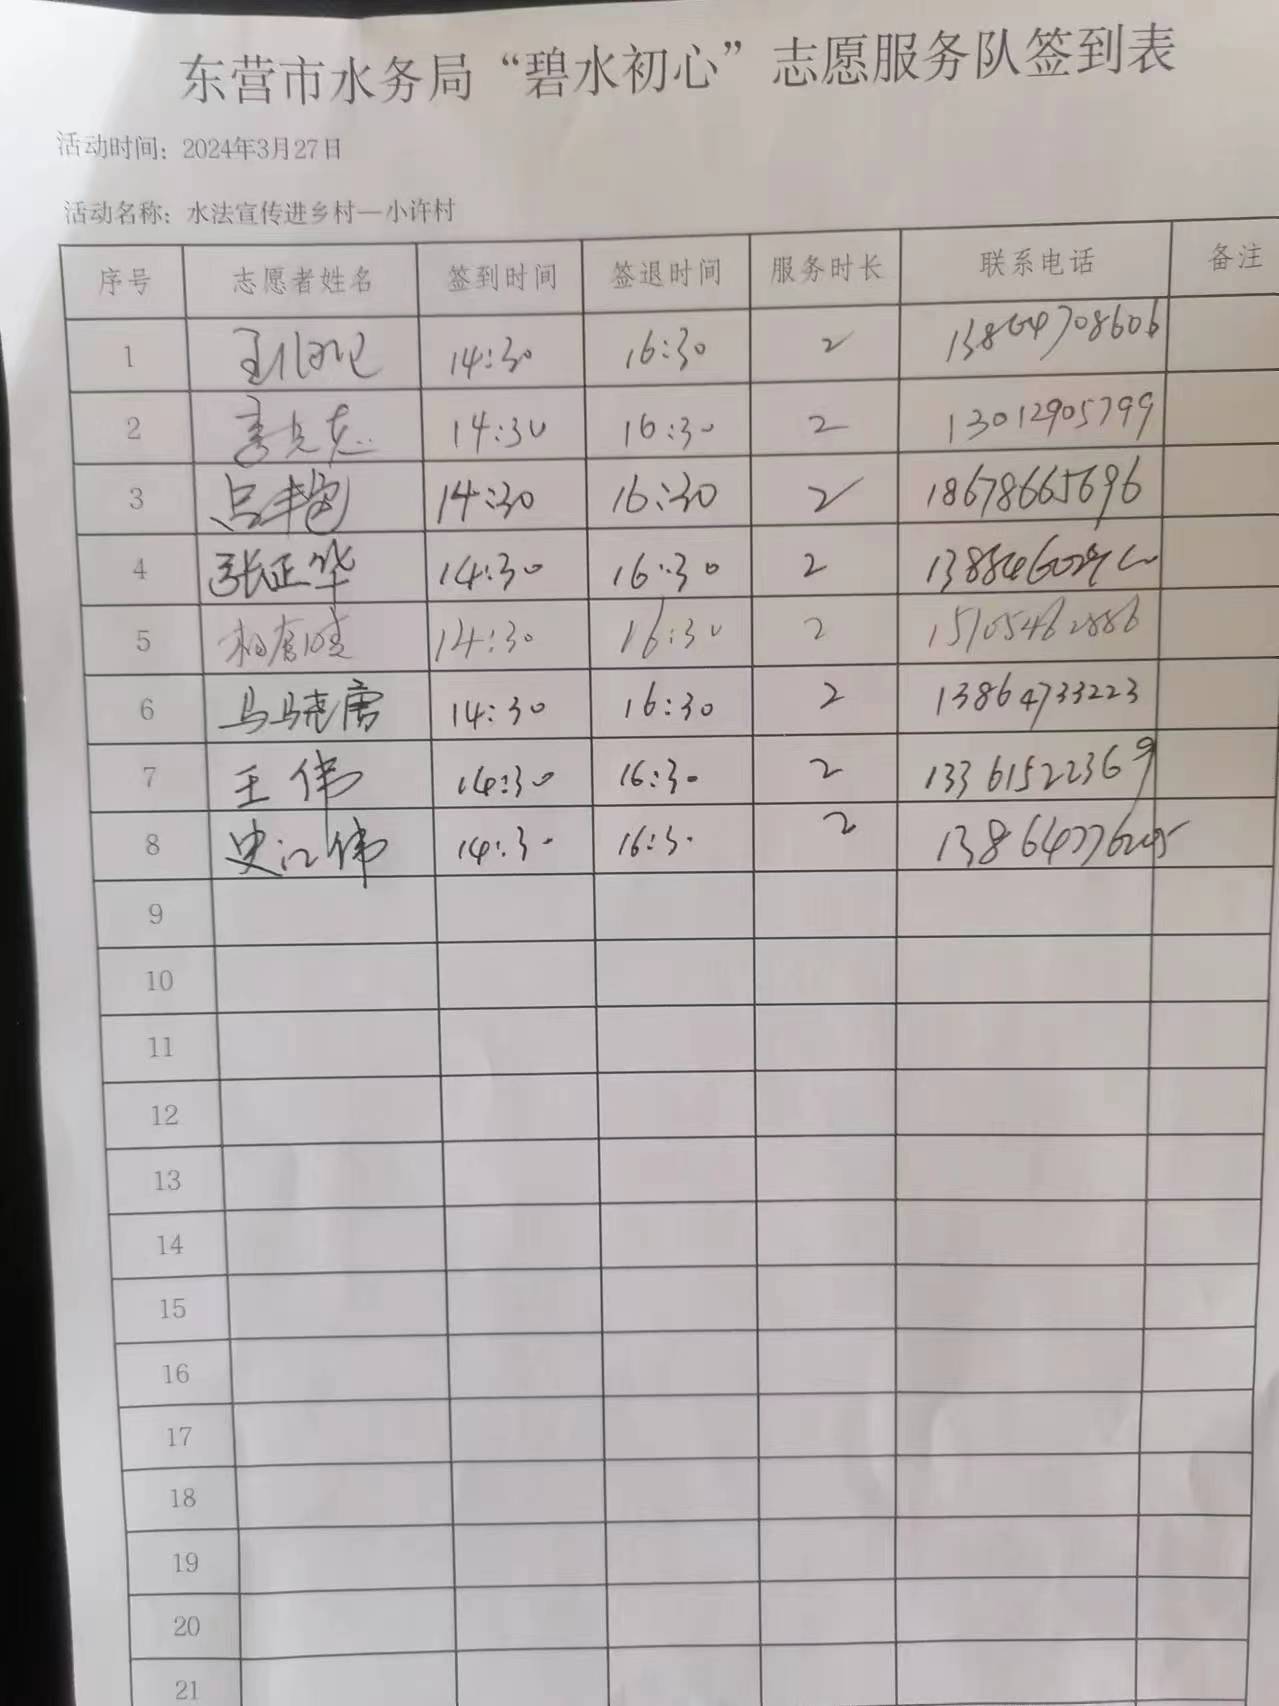 东营市水务局“碧水初心”志愿服务队签到表
活动时间：2024年3月27日
活动名称：水法宣传进乡村—小许村
序号 志愿者姓名 签到时间 签退时间 服务时长 联系电话 备注
1 14:30 16:30 2 13864708606
2 14:30 16:30 2 13012905799
3 14:30 16:30 2 18678665696
4 张正华 14:30 16:30 2
5 14:30 16:30 2 15105462886
6 马晓唐 14:30 16:30 2 13864733223
7 王伟 14:30 16:30 2 13361522369
8 史江伟 14:30 16:30 2
9
10
11
12
13
14
15
16
17
18
19
20
21